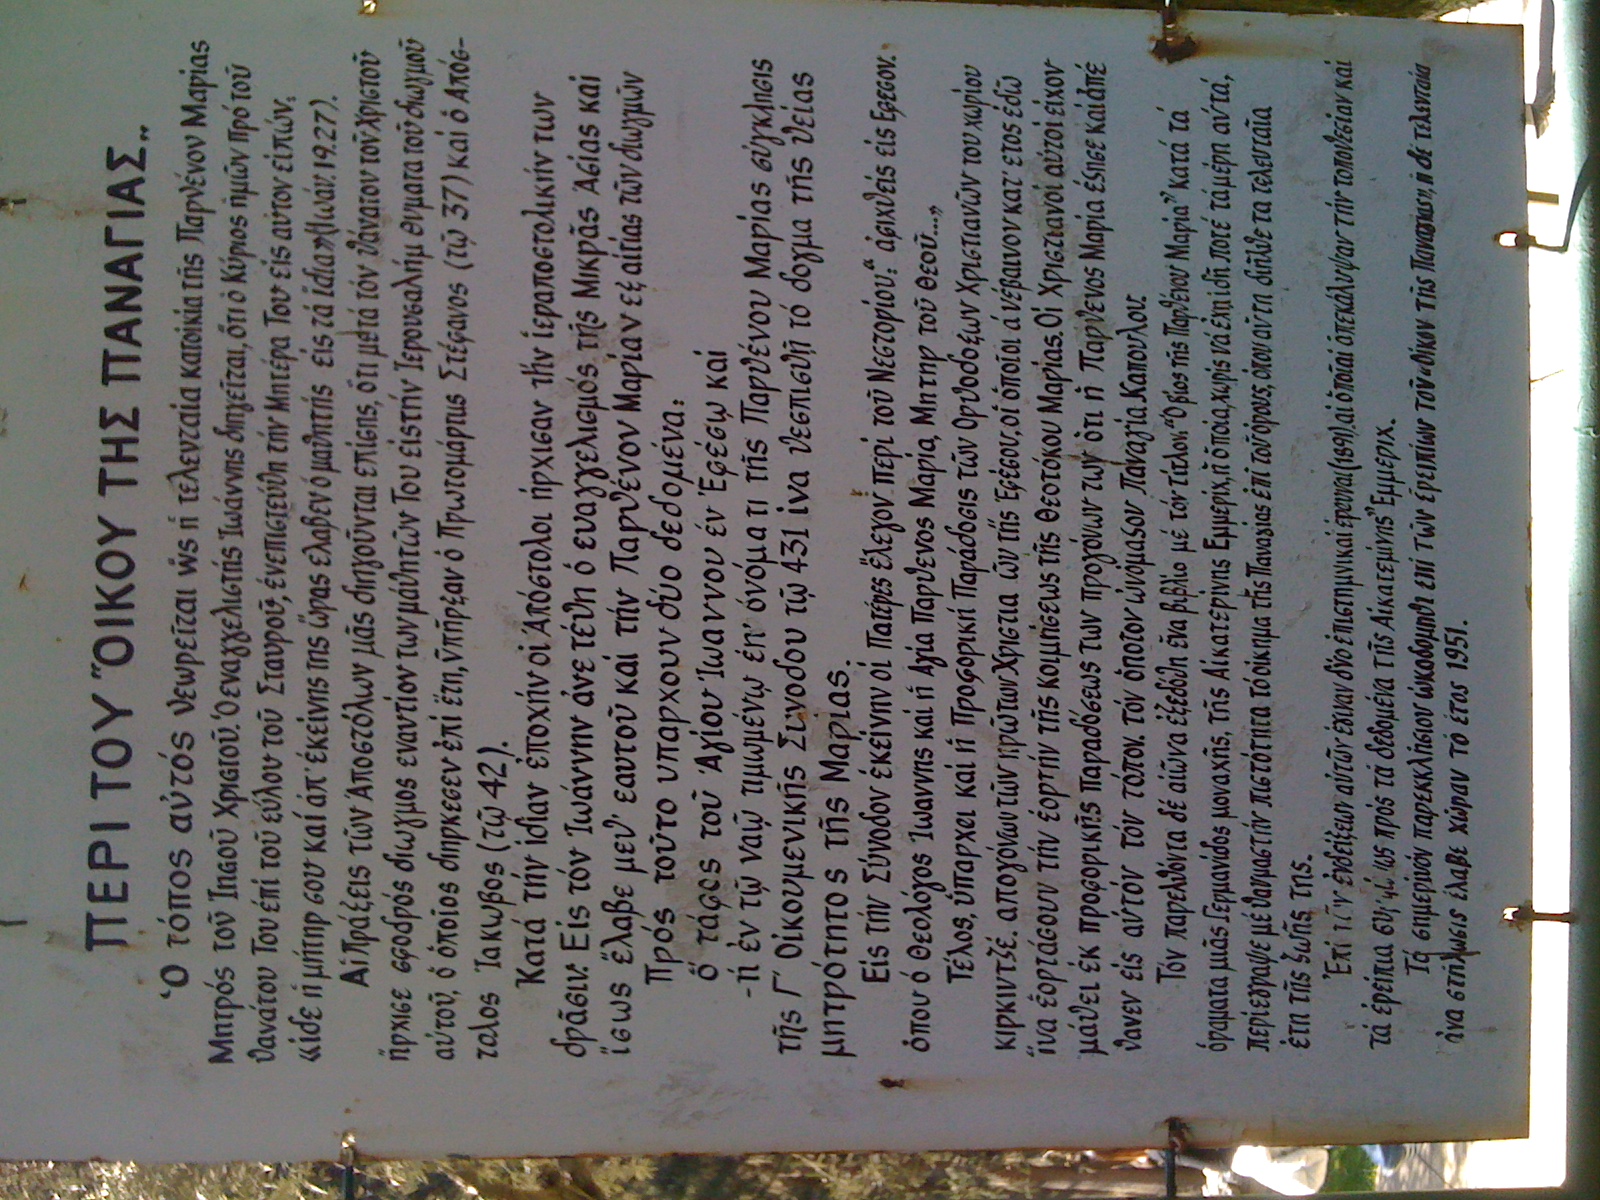 ΠΕΡΙ ΤΟΥ "ΟΙΚΟΥ ΤΗΣ ΠΑΝΑΓΙΑΣ„
Ὁ τόπος αὐτός θεωρεῖται ὡς ἡ τελευταία κατοικία τῆς Παρθένου Μαρίας
Μητρός τοῦ Ἰησοῦ Χριστοῦ. Ὁ εναγγελιστής Ἰωάννης διηγεῖται, ὅτι ὁ Κύριος ἡμῶν πρό τοῦ
θανάτου Του ἐπί τοῦ ξύλου τοῦ Σταυροῦ, ἐνεπιστεύθη τήν Μητέρα Του εἰς αὐτον εἰπών:
«ἰδε ἡ μήτηρ σου καί ἀπ' ἐκείνης της ὥρας ελαβεν ὁ μαθητής εἰς τά ἴδια»(Ἰωάν. 19.27).
Αἱ Πράξεις τῶν Ἀποστόλων μᾶς διηγοῦνται επίσης, ὅτι μετά τόν θάνατον τοῦ Χριστοῦ
ἤρχισε σφοδρός διωγμος εναντίον των μάθητῶν Του εἰς τήν Ἱερουσαλήμ θυματα τοῦ διωγμοῦ
αὐτοῦ, ὁ ὁποῖος διηρκεσεν ἐπί ἔτη, ὑπῆρξαν ὁ Πρωτομάρτυς Στέφανος (τῷ 37) καί ὁ Ἀπόσ-
τολος Ἰακωβος (τῷ 42).
Κατά τήν ἰδιαν ἐποχήν οἱ Ἀπόστολοι ἠρχισαν τήν ἱεραποστολικήν των
δρᾶσιν. Εἰς τόν Ἰωάννην ἀνε τέθη ὁ ευαγγελισμός τῆς Μικρᾶς Ἀσίας καί
ἴσως ἔλαβε μεθ' εαυτοῦ καί τήν Παρθένον Μαρίαν εξ αἰτίας τῶν διωγμῶν
Πρός τοῦτο υπαρχουν δύο δεδομένα:
ὁ τάφος τοῦ Ἁγίου Ἰωαννου ἐν Ἐφέσῳ καί
-ἡ ἐν τῷ ναῷ τιμωμένῳ ἐπ' ὀνόματι τῆς Παρθένου Μαρίας σύγκλησις
τῆς Γ' Οἰκουμενικῆς Συνοδου τῷ 431 ἱνα θεσπισθῇ τό δογμα τῆς θείας
μητρότητος τῆς Μαρίας.
Εἰς τήν Σύνοδον ἐκείνην οἱ Πατέρες ἔλεγον περί τοῦ Νεστορίου: "ἀφιχθείς εἰς Εφεσον.
ὁπου ὁ Θεολόγος Ἰωαννης καί ἡ Ἁγία Παρθενος Μαρία, Μητηρ τοῦ Θεοῦ...„
Τέλος, ὑπαρχει καί ἡ Προφορική Παράδοσις τῶν Ορθοδοξων Χριστιανῶν του χωρίου
κιρκιντζέ. απογόνων τῶν πρῶτων Χριστια ῶν τῆς Ἐφέσου, οἱ ὁποῖοι ἀνέβαινον κατ' ετος ἐδῶ
ἵνα ἑορτάσουν τήν ἑορτήν τῆς κοιμήσεως τῆς Θεοτόκου Μαρίας. Οἱ Χριστιανοί αὐτοί εἰχον
μάθει ἐκ προφορικῆς παραδόσεως των προγόνων των ὁτι ἡ Παρθενος Μαρία ἐζησε καί ἀπέ
θανεν εἰς αὐτόν τόν τόπον. τόν ὁποῖον ὠνόμαζον Παναγία Καπουλου.
Τόν παρελθόντα δέ αἰῶνα ἐξεδόθη ἕνα βιβλίο μέ τόν τίτλον: "Ὁ βίος τῆς Παρθένου Μαρία" κατά τά
ὁραματα μιᾶς Γερμανίδος μοναχῆς, τῆς Αἰκατερίνης Εμμεριχ, ἡ ὁποία, χωρίς νά ἐχῃ ἰδῆ ποτέ τά μέρη αυτά,
περιέγραψε μέ θαυμαστήν πιστότητα τό οίκημα τῆς Παναγίας ἐπί τοῦ ὀρους, ὁπου αὐτη διῆλθε τα τελευταῖα
ἐτη τῆς ζωῆς της.
Ἐπί τῶν ἐνδείξεων αὐτῶν ἐγιναν δύο ἐπιστημνικαί ἐρευναι (1891). αἱ ὁποῖαι ἀπεκάλυψαν τήν τοποθεσίαν καί
τά ἐρείπια πρός τά δεδομένα τῆς Αἰκατεμίνης Ἐμμεριχ.
Τό σημερινόν παρεκκλήσιου ὠκοδομηθι επί τῶν ἐρειπίων τοῦ «Οἰκου τῆς Παναγιας», ἡ δέ τελευταία
ἀνα στήλωσις ἐλαβε χώραν τό ἐτος 1951.